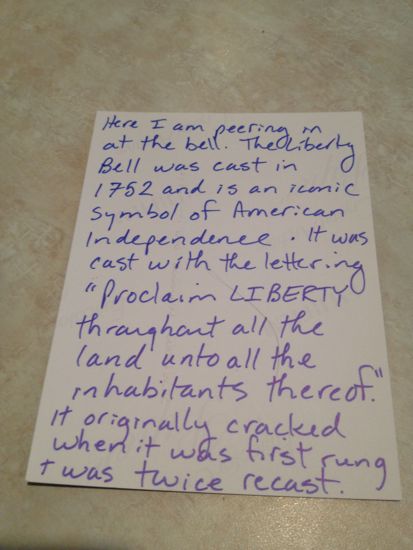 Here I am peering in
at the bell. The Liberty
Bell was cast in
1752 and is an iconic
symbol of American
Independence. It was
cast with the lettering
"Proclaim LIBERTY
throughout all the
land unto all the
inhabitants thereof."
It originally cracked
when it was first rung
+ was twice recast.